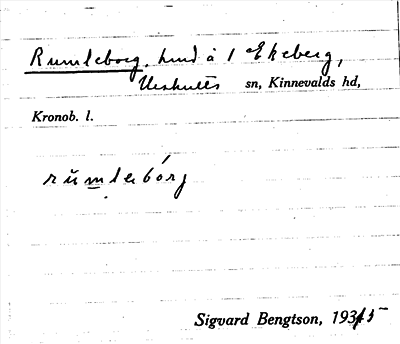 Rumleborg, hmd å 1 Ekeberg,
Urshults sn, Kinnevalds hd,
Kronob. l.
rŭmlebórg
Sigvard Bengtson, 1935